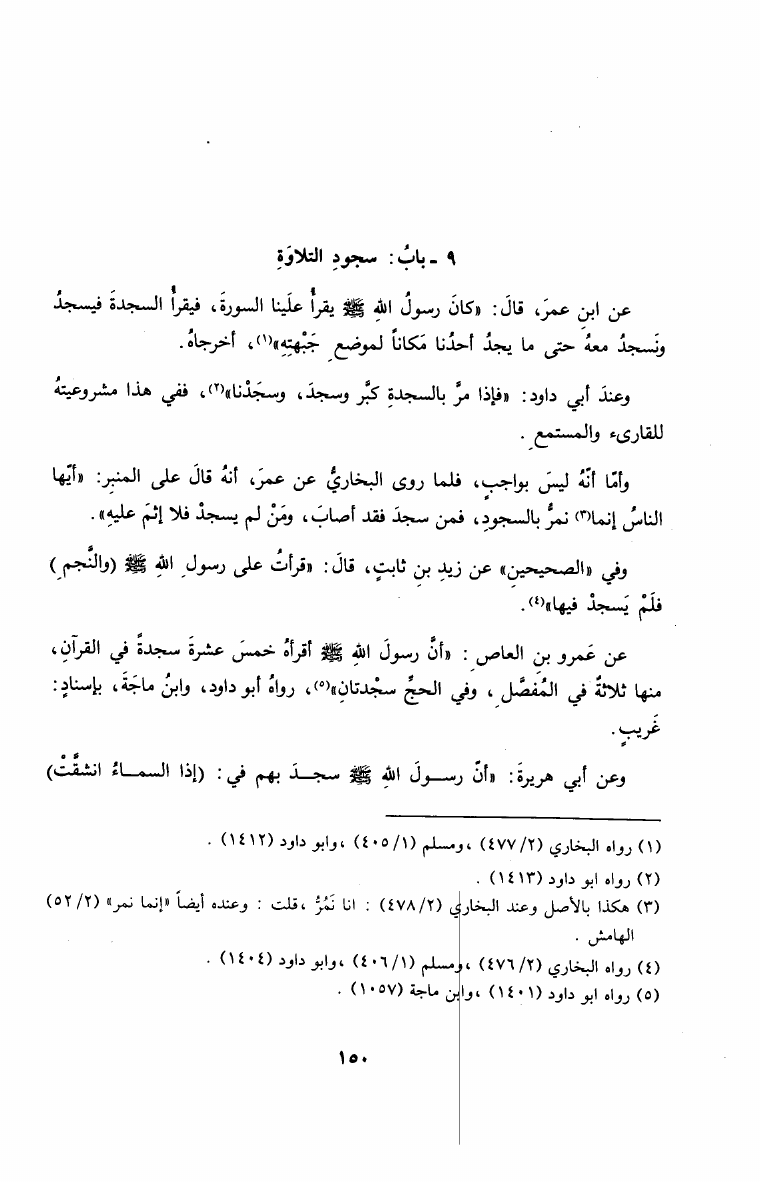 ٩ - بابُ: سجودِ التلاوَةِ
عن ابنِ عمرَ، قالَ: «كانَ رسولُ اللهِ ﷺ يقرأُ علَينا السورةَ، فيقرأُ السجدةَ فيسجدُ
ونَسجدُ معهُ حتى ما يجدُ أحدُنا مَكاناً لموضعِ جَبْهتِهِ»(١)، أخرجاهُ.
وعندَ أبي داود: «فإذا مرَّ بالسجدةِ كبَّر وسجدَ، وسجَدْنا»(٢)، ففي هذا مشروعيتهُ
للقارىء والمستمعِ.
وأمّا أنّهُ ليسَ بواجبٍ، فلما روى البخاريُّ عن عمرَ، أنهُ قالَ على المنبرِ: «أيّها
الناسُ إنما(٣) نمرُّ بالسجودِ، فمن سجدَ فقد أصابَ، ومَنْ لم يسجدْ فلا إثمَ عليهِ».
وفي «الصحيحينِ» عن زيدِ بنِ ثابتٍ، قالَ: «قرأتُ على رسولِ اللهِ ﷺ (والنَّجمِ)
فلَمْ يَسجدْ فيها»(٤).
عن عَمرو بنِ العاصِ: «أنَّ رسولَ اللهِ ﷺ أقرأهُ خمسَ عشرةَ سجدةً في القرآنِ،
منها ثلاثةٌ في المُفصَّلِ، وفي الحجِّ سجْدتانِ»(٥)، رواهُ أبو داود، وابنُ ماجَةَ، بإسنادٍ:
غَريبٍ.
وعن أبي هريرةَ: «أنّ رســولَ اللهِ ﷺ سجــدَ بهم في: (إذا السمــاءُ انشقَّتْ)
(١) رواه البخاري (٤٧٧/٢)، ومسلم (٤٠٥/١)، وابو داود (١٤١٢).
(٢) رواه ابو داود (١٤١٣).
(٣) هكذا بالأصل وعند البخاري (٤٧٨/٢): انا نَمُرُّ، قلت: وعنده أيضاً «إنما نمر» (٥٢/٢)
الهامش.
(٤) رواه البخاري (٤٧٦/٢)، ومسلم (٤٠٦/١)، وابو داود (١٤٠٤).
(٥) رواه ابو داود (١٤٠١)، وابن ماجة (١٠٥٧).
١٥٠